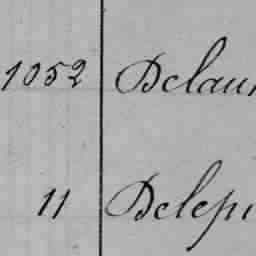 1052 Delaun
11 Delepi